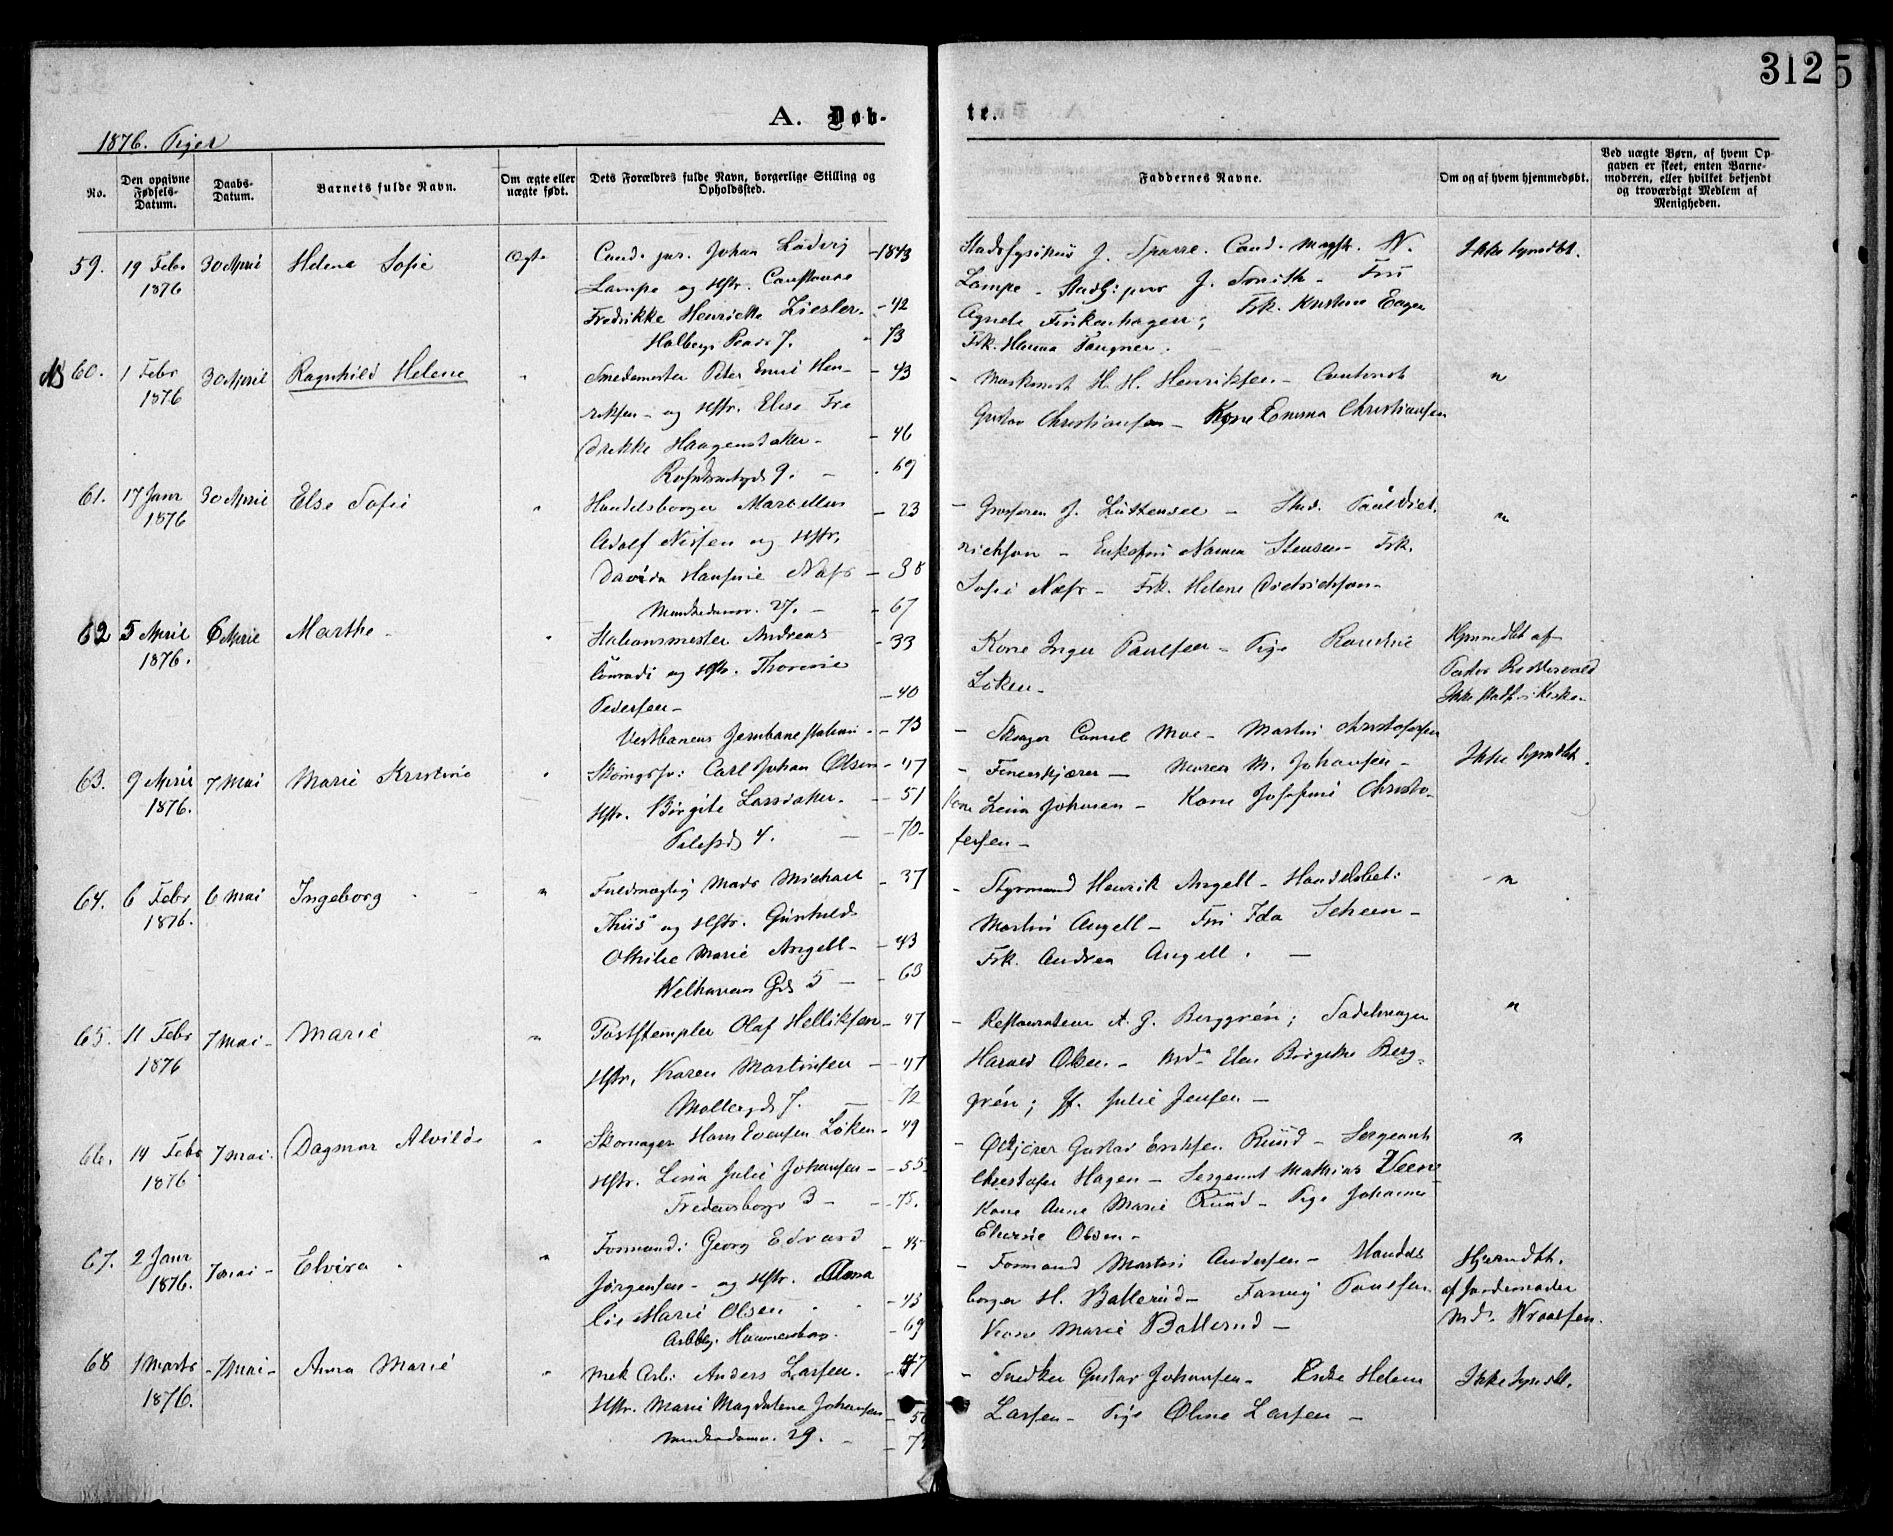 312
5
A. Døb-
te.
1876. Piger
No.
Den opgivne Fødsels-Datum.
Daabs-Datum.
Barnets fulde Navn.
Om ægte eller uægte født.
Dets Forældres fulde Navn, borgerlige Stilling og Opholdssted.
Faddernes Navne.
Om og af hvem hjemmedøbt.
Ved uægte Børn, af hvem Opgaven er skeet, enten Barnemoderen, eller hvilket bekjendt og troværdigt Medlem af Menigheden.
59. 19 Febr 30 April Helene Sofie Ægte Cand. jur. Johan Ludvig - 1843
1876 Lampe og Hstr. Constance
Fredrikke Henriette Ziesler - 42
Holbergs Plads 7. - 73
Stadsfysikus J. Sparre. Cand. N.
Lampe - J. Smith - Fru
Agnete Finkenhagen; Frk. Kristine
Frk. Hanna Tangner.
60. 1 Febr 30 April Ragnhild Helene " Smedemester Peter Emil Hen- - 43
1876 riksen - og Hstr. Elise Fre
drikke Haagenstaker - - 46
9. - 69
- Maskinist H. H. Henriksen -
Gustav Christiansen - Kone Emma Christiansen
"
61. 17 Janr 30 April Else Sofie " Handelsborger Marcellus - 23
1876 Adolf Nissen og Hstr.
Davida Hansine - 38
Munkedamsv. 27. - - 67
- J. Lüttensee - Stud. Paul Diet.
richson - Enkefru Nanna Stensen - Frk.
Sofie - Frk. Helene Dietrichson -
"
62 5 April 6 April Marthe - " Stationsmester Andreas - 33
1876. Conradi og Hstr. Thorine
Pedersen - - 40
Vestbanens Jernbanestation - - 73
Kone Inger Paulsen - Pige Randine
Løken -
Hjemmedøbt af
Pastor
Ikke stadf. i Kirken.
63. 9 April 7 Mai Marie Kristine " Carl Johan Olsen - 47
1876. Hstr. Birgite Larsdatter. - 51
Pilestrd. 4. - 70 -
- Moe - Martin Christofersen
- - Maren M. Johansen -
Kone Lina Johnsen - Kone Josefine Christo-
fersen -
Ikke hjmdøbt.
64. 6 Febr 6 Mai Ingeborg - " Fuldmægtig Mads Michael - 37
1876. Thiis og Hstr. Gunhild
Othilie Marie Angell - - 43
Welhavens Gd. 5 - - 63
- Styrmand Henrik Angell - Handelsbet:
Martin Angell - Fru Ida Scheen -
Frk. Andrea Angell. -
"
65. 11 Febr 7 Mai - Marie " Poststempler Olaf Helliksen - 47
1876 Hstr. Karen Martinsen - - 47
Møllergd. 7. - 72
- Restauratør A. G. Berggrén; Sadelmager
Harald Olsen - Md. Elen Birgitte Berg-
grén; Jf. Julie Jensen -
"
66. 14 Febr 7 Mai. Dagmar Alvilde " Skomager Hans Evensen Løken - 49
1876 Hstr. Lina Julie Johansen - - 55
Fredensborgv. 3 - - 75.
- Gustav Eriksen Ruud - Sergeant
Christofer Hagen - Sergeant Mathias
Kone Anne Marie Ruud - Pige Johanne
Olsen -
"
67. 2 Janr 7 Mai - Elvira - " Formand: Georg Edvard - 45
1876. Jørgensen - og Hstr.
lie Marie Olsen - 43
- 69
- Formand Martin Andersen - Handels
borger H. Ballerud - Fanny Paulsen.
Kone Marie Ballerud -
Hjemdøbt.
af Jordemoder
Md.
68 1 Marts - 7 Mai - Anna Marie " Mek. Arb: Anders Larsen. - 47
1876. Hstr. Marie Magdalena Johansen
Munkedamsv. 29. -
- Snedker Gustav Johansen - Enke Helene
Larsen - Pige Oline Larsen -
Ikke hjmdbt.